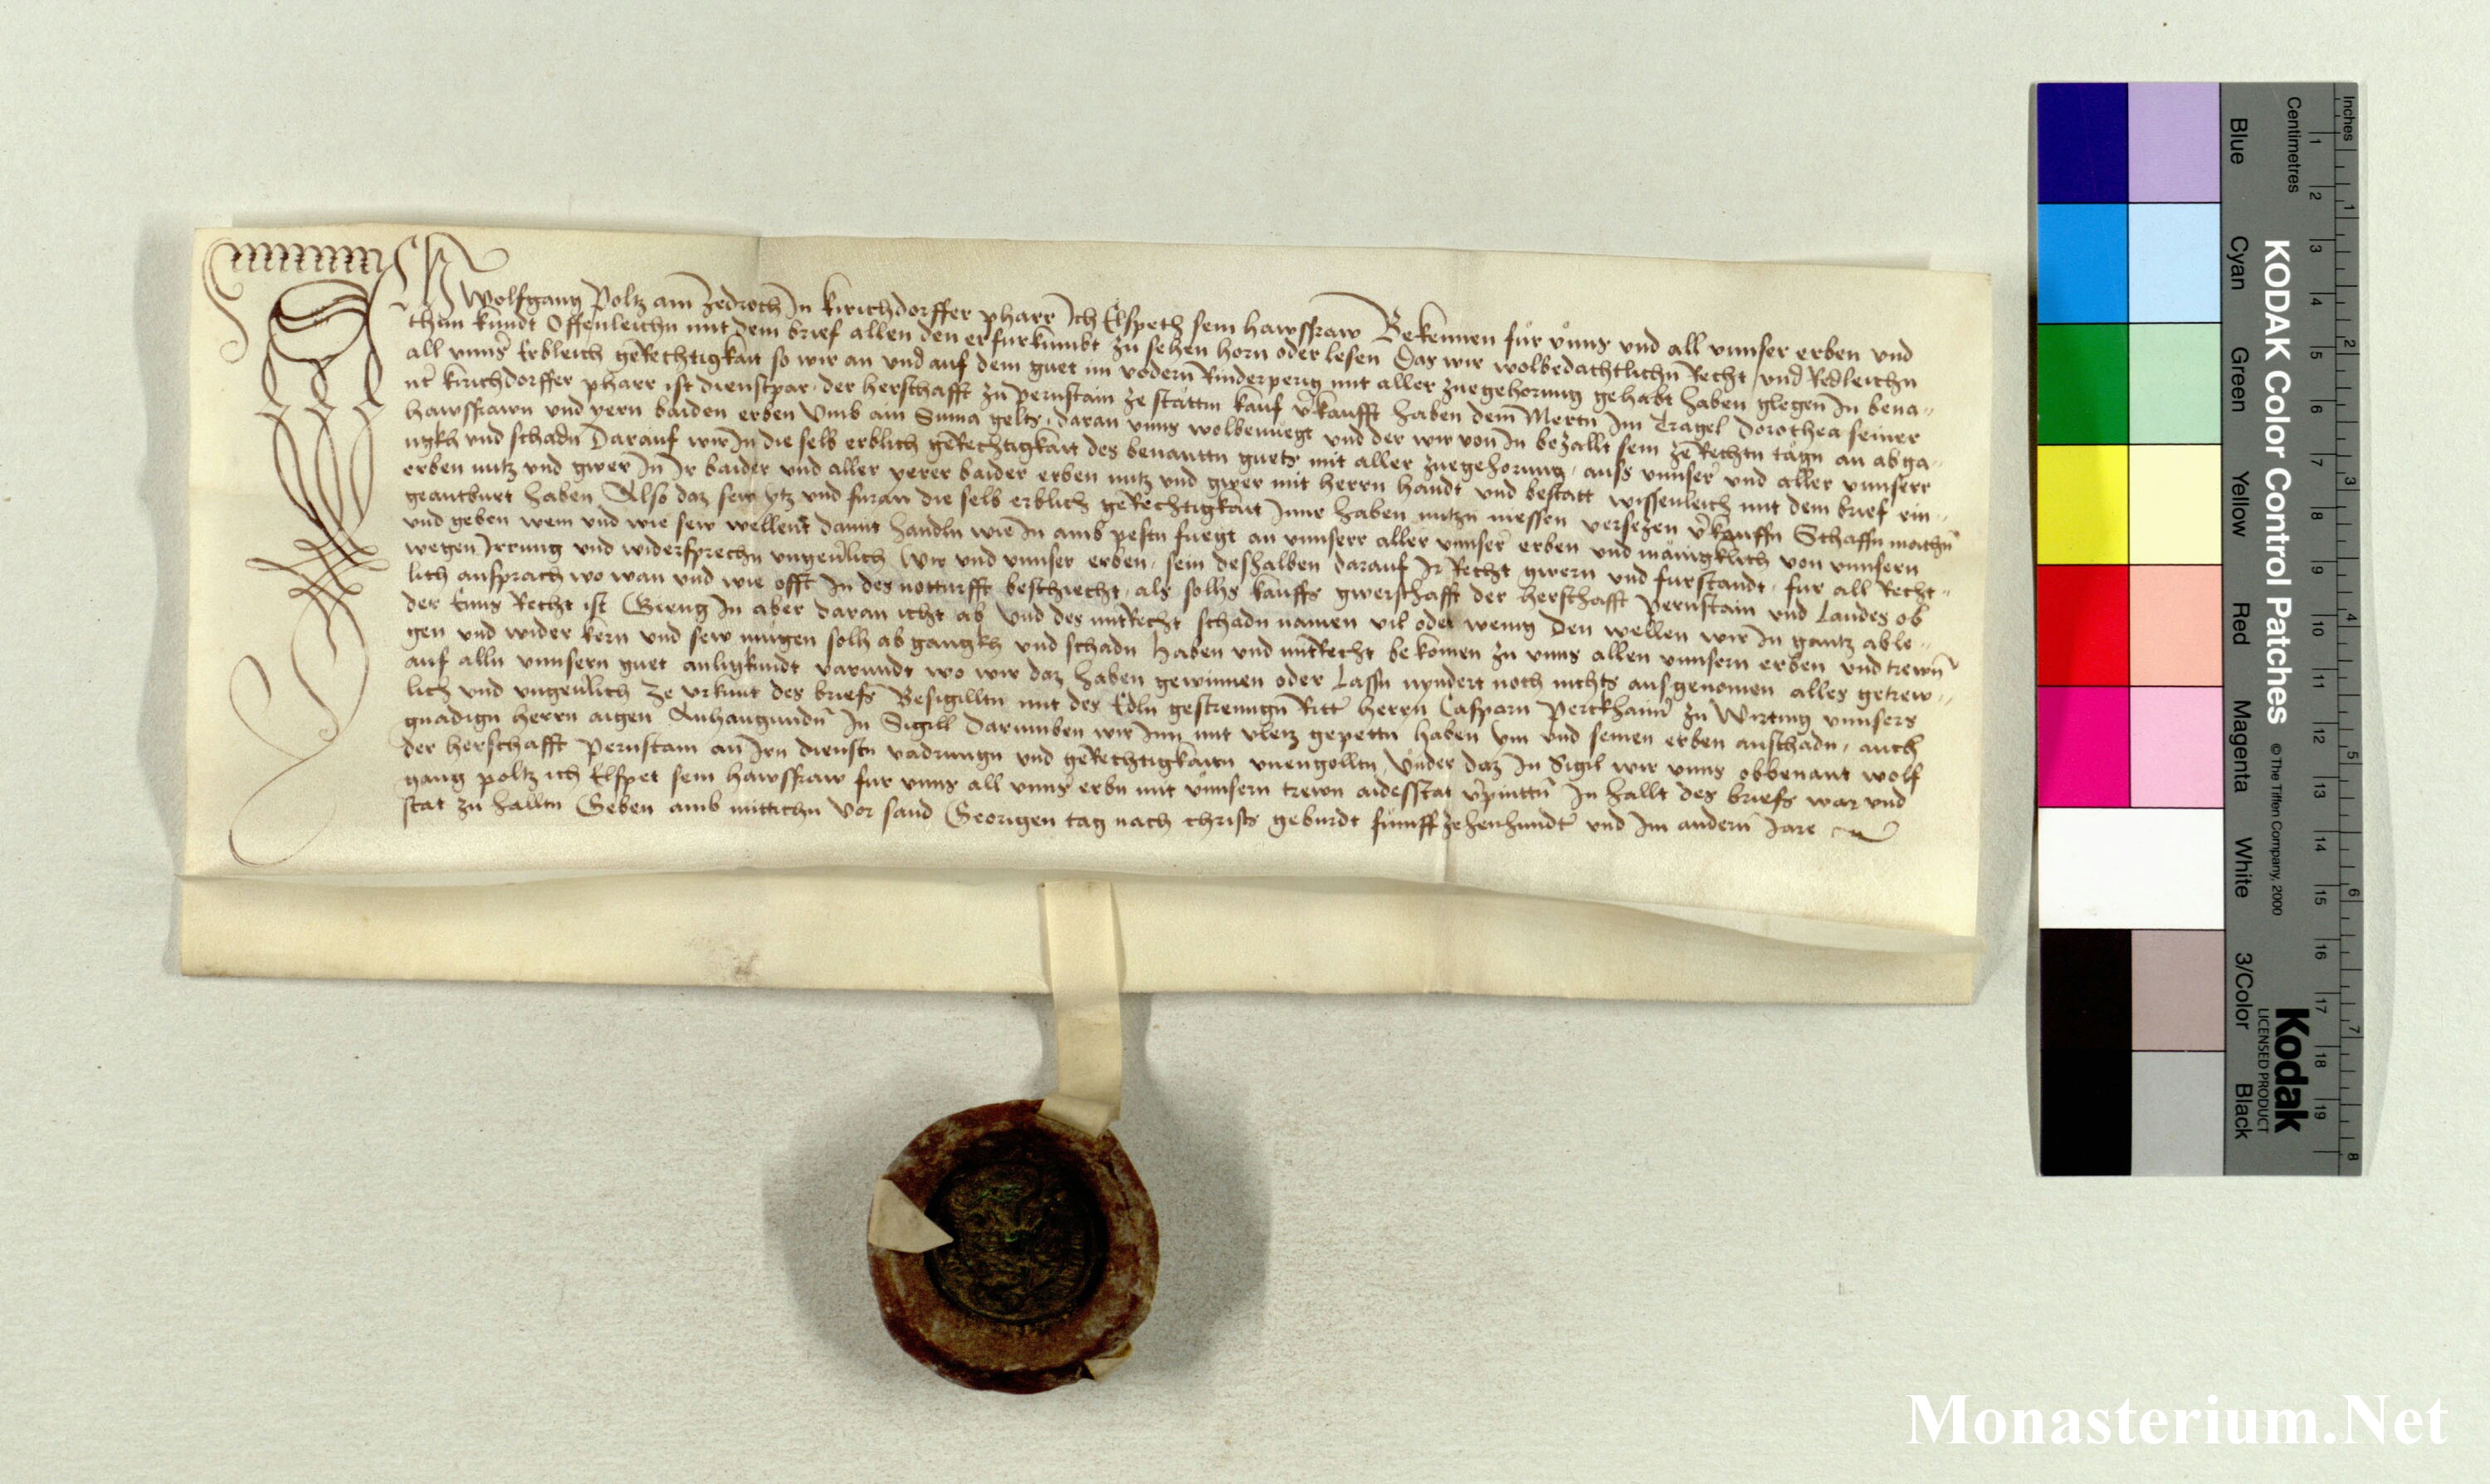 Ich Wolfgang Poltz am Zedroch In kirichdorffer pharr Ich Elspeth sein hawssfraw Bekennen fur unns und all unnser erben und
thun kundt Offenleichn mit dem brief allen den er furkumbt zu sehen horn oder lesen Das wir wolbedachtlichn Recht und Redleichn
all unns erbleich gerechtigkait so wir an und auf dem guet im vodern Rinderperig mit aller zuegehorung gehabt haben glegen In bena-
nt kirichdorffer pharr ist dienstpar der herschafft zu pernstain ze stattn kauf vkaufft haben dem Mertn Im Tragel Dorothea seiner
hawssfrawn und yern baiden erben Umb ain Suma gelts daran unns wolbenuegt und der wir von In bezallt sein ze Rechtn tagn an abga-
ngkh und schadn Darauf wir In die selb erblich gerechtigkait des benanttn guets mit aller zuegehorung auss unnser und aller unnserr
erben nutz und gwer In Ir baider und aller yerer baider erben nutz und gwer mit herrn handt und bestatt wissenleich mit dem brief ein-
geantburt haben Also daz sew ytz und furan die selb erblich gerechtigkait Inne haben nutzn niessen versezen vkauffn Schaffn machn
und geben wem und wie sew wellent damit handln wie In amb pestn fuegt an unnserr aller unnser erben und mänigklich von unnsern
wegen Irrung und widersprechn ungeulich Wir und unnser erben sein deshalben darauf Ir Recht gwern und furstandt fur all Recht-
lich ansprach wo wan und wie offt In des notturfft beschiecht als solhs kauffs gwerschafft der herschafft pernstain und Landes ob
der Enns Recht ist Gieng In aber daran icht ab Und des mitRecht schadn namen vil oder wenig Den wellen wir In gantz able-
gen und wider kern und sew mugen solh ab gangkh und schadn haben und mitRecht bekomen zu unns allen unnsern erben und trewn
auf alln unnsern guet anligkundt varundt wo wir daz haben gewinnen oder Lassn nyndert noch nichts ausgenomen alles getrew-
lich und ungeulich Ze urkunt des briefs Besigilltn mit des Edln gestrenngn Ritt herrn Casparn Perckhaimer zu Wirting unnsers
gnadign herrn aigen Anhangundn In Sigill Darumben wir Inn mit vleiz gepettn haben Im und seinen erben anschadn auch
der herschafft pernstain an Irn dienstn vadrungn und gerechtigkaitn unengolltn Under daz In Sigil wir unns obbenant wolf
gang poltz ich Elspet sein hawssfraw fur unns all unns erbn mit unnsern trewn aidesstat vpinttn In hallt des briefs war und
stat zu halltn Geben amb mittichn Vor sand Georigen tag nach christs geburdt funffzehenhundt und Im andern Jare
Inches
Centimetres
1 2 3 4 5 6 7 8 9 10 11 12 13 14 15 16 17 18 19
1 2 3 4 5 6 7 8
KODAK Color Control Patches © The Tiffen Company, 2000
Kodak
LICENSED PRODUCT
Blue Cyan Green Yellow Red Magenta White 3/Color Black
Monasterium.Net